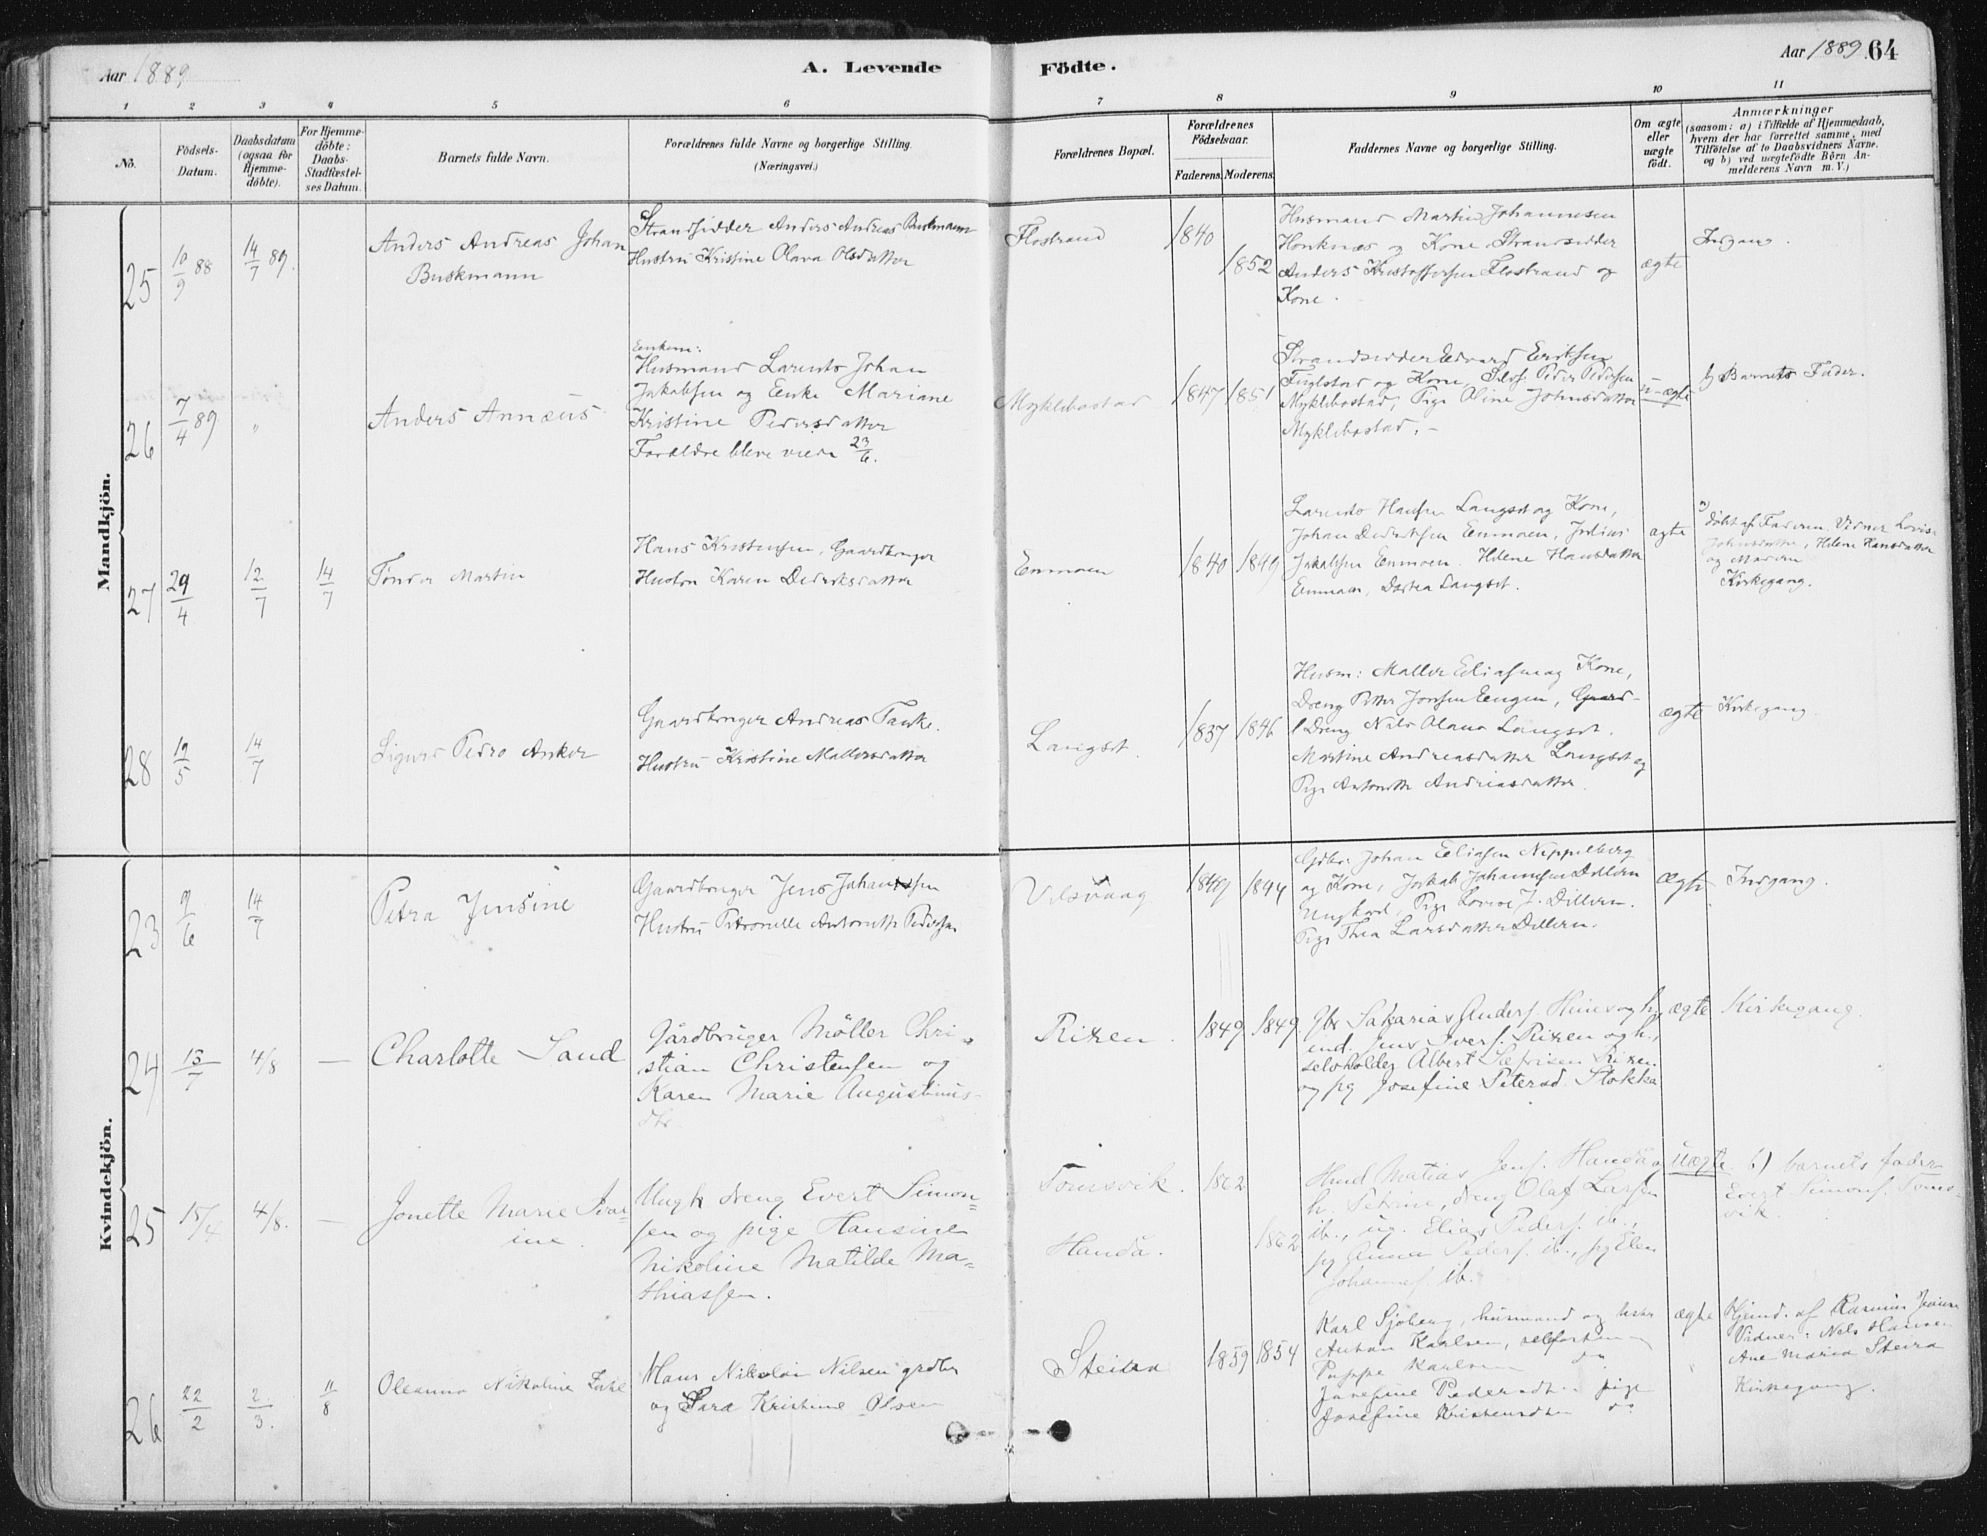 Aar 1889
A. Levende
Födte.
Aar 1889. 64
1 2 3 4 5 6 7 8 9 10 11
No.
Födsels-
Datum.
Daabsdatum
(ogsaa for
Hjemme-
döbte).
For Hjemme-
döbte:
Daabs-
Stadfæstel-
ses Datum.
Barnets fulde Navn.
Forældrenes fulde Navne og borgerlige Stilling.
(Næringsvei.)
Forældrenes Bopæl.
Forældrenes
Födselsaar.
Faderens. Moderens.
Faddernes Navne og borgerlige Stilling.
Om ægte
eller
uægte
födt.
Anmærkninger
(saasom: a) i Tilfælde af Hjemmedaab,
hvem der har forrettet samme, med
Tilföielse af to Daabsvidners Navne.
og b) ved uægtefödte Börn An-
melderens Navn m. V.)
Mandkjön.
25
10/9 88
14/7 89.
Anders Andreas Johan
Buskmann
Strandsidder Anders Andreas Buskmann
Hustru Kristine Olava Olsdatter
Flostrand
1840
1852
Husmand Martin Johannesen
Honknæs og Kone, Strandsidder
Anders Kristoffersen Flostrand og
Kone.
ægte
Indgang.
26
7/4 89
"
Anders Annæus
Enkem:
Husmand Larents Johan
Jakobsen og Enke Mariane
Kristine Pedersdatter
Forældre bleve viede 23/6.
Myklebostad
1847
1851
Strandsidder Edvard Eriksen
Fuglstad og Kone, Selvf. Peder Pedersen
Myklebostad, Pige Oline Johnsdatter
Myklebostad. -
u-ægte
b) Barnets Fader.
27
29/4
12/7
14/7
Tonder Martin
Hans Kristensen, Gaardbruger
Hustru Karen Dideriksdatter
Enmoen
1840
1849
Larents Hansen Langset og Kone,
Johan Dideriksen Enmoen, Julius
Jakobsen Enmoen. Helene Hansdatter
Enmoen, Dortea Langset.
ægte
a) döbt af Faderen. Vidner Lovise
Johnsdatter, Helene Hansdatter
og Moderen
Kirkegang.
28
19/5
14/7
Sigurd Pedro Anker
Gaardbruger Andreas Tanke.
Hustru Kristine Mallersdatter
Langset.
1837
1846
Husm: Maller Eliasen og Kone,
Dreng Petter Jonsen Eengen, Gaard-
Dreng Nils Olaus Langset.
Martine Andreasdatter Langset og
Pige Antonette Andreasdatter
ægte
Kirkegang.
Kvindekjön.
23
9/6
14/7
Petra Jensine
Gaardbruger Jens Johansen
Hustru Petronelle Antonette Pedersen
Vilsvaag
1849
1844
Gdbr: Johan Eliasen Nippelberg
og Kone, Jakob Johannesen Dillern
Ungkarl, Pige Lovise J. Dillern.
Pige Thea Larsdatter Dillern.
Ægte
Indgang.
24
13/7
4/8
—
Charlotte Sand
Gårdbruger Möller Chri-
stian Christensen og
Karen Marie Augustinus-
dtr.
Rixen.
1849
1849.
Gbr Sakarias Anders. Huus og h,
ind. Jens Ivers. Rixen og h,
selvholder Albert Rixen
og pg Josefine Petersd. Stokka
ægte
Kirkegang.
25
15/4
4/8.
—
Jonette Marie Iva-
ine.
Ungk dreng Evert Simon-
sen og pige Hansine
Nikoline Matilde Ma-
thiassen.
Tomsvik.
Handå.
1862
1862
Hmd Matias Jens. Handå og
h. Petrine, dreng Olaf Larsen
ib., ug. Elias Peders. ib.,
pg Anna Peders. ib., pg Elen
Johannes. ib.
uægte
b) barnets fader
Evert Simons. Toms-
vik.
26
22/2
2/3.
11/8
Oleanna Nikoline
Hans Nikolai Nilsen grdbr
og Sara Kristine Olsen
Steiraa
1859
1854
Karl Sjöberg, husmand og kone
Anton Karlsen,
Karlsen do
Josefine Pedersdt. pige
Josefine Kristensdtr do
ægte
Hjemd. af Rasmus
Vidner: Nels Hansen
Ane Maria Steira
Kirkegang.